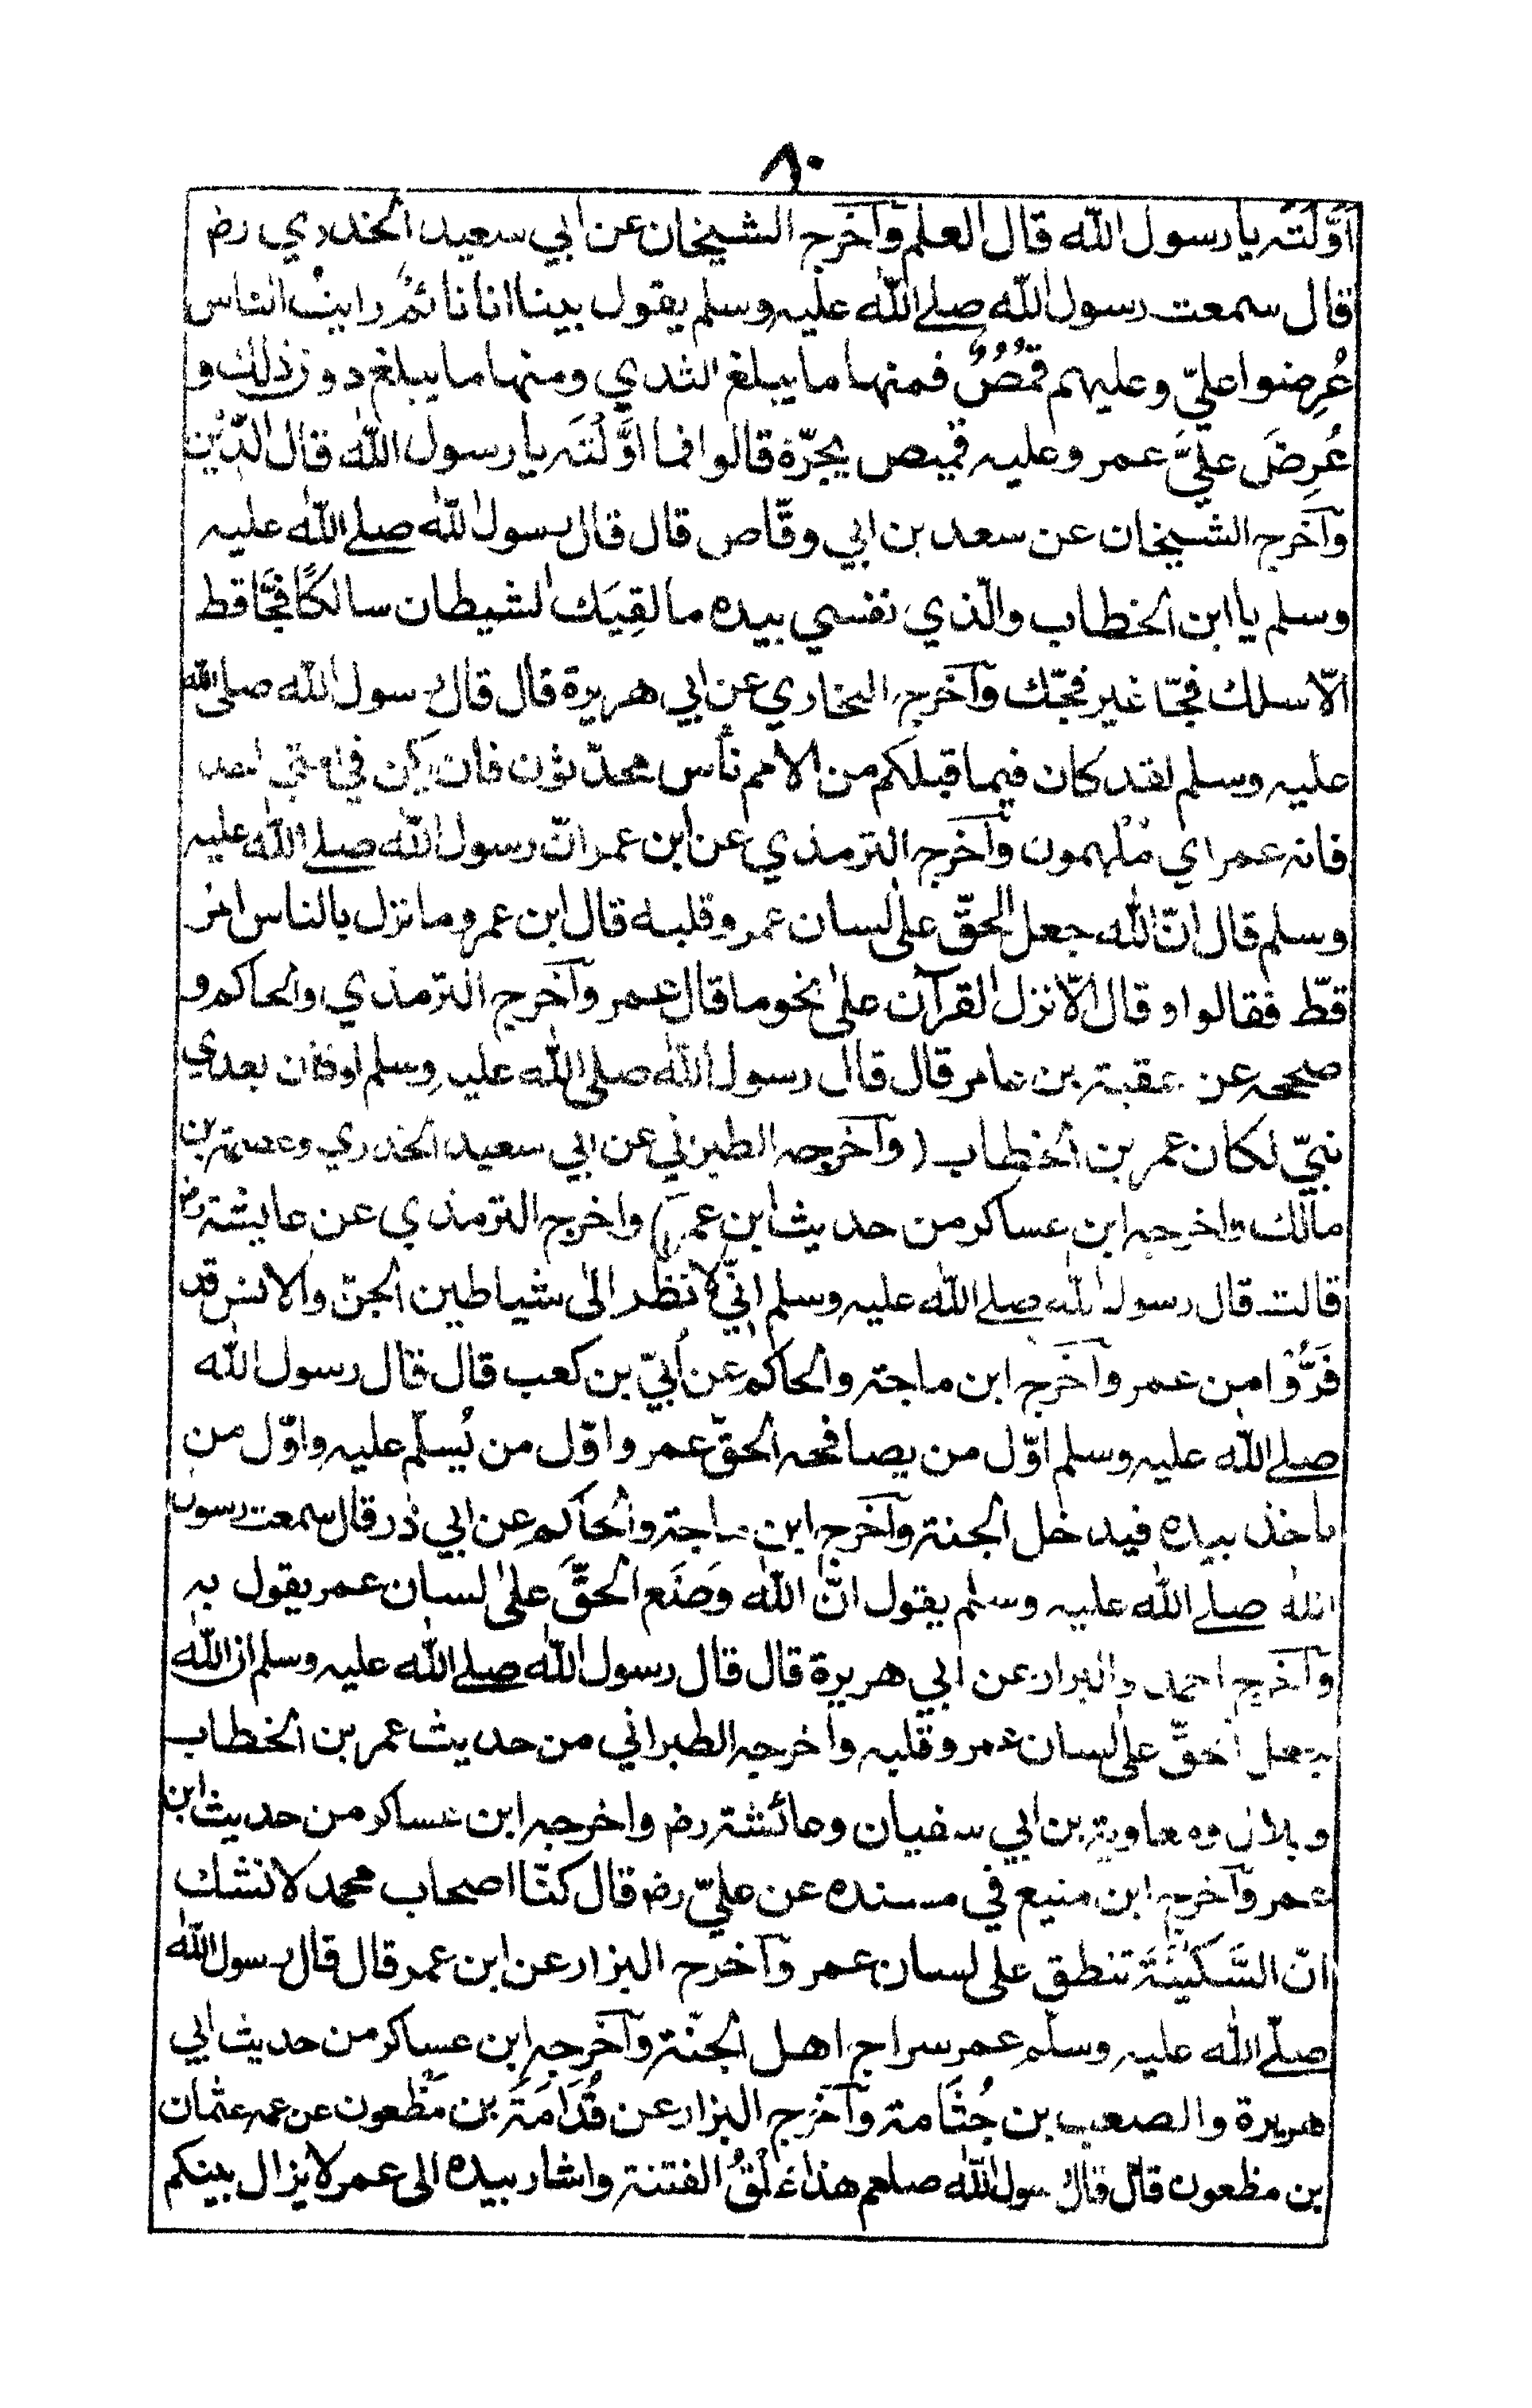 ٨٠
اَوَّلْتَه يا رسول الله قال العلم وآخرج الشيخان عن ابي سعيد الخدري رض
قال سمعت رسول الله صلے الله عليه وسلم يقول بينا انا نائم رايت الناس
عُرِضوا عليّ وعليهم قُمُصٌ فمنها ما يبلغ الثدي ومنها ما يبلغ دون ذلك و
عُرِضَ عليَّ عمر وعليه قميص يجرّه قالوا فما اَوَّلْتَه يا رسول الله قال الدِّيْن
وآخرج الشيخان عن سعد بن ابي وقّاص قال قال رسول الله صلے الله عليه
وسلم يا ابن الخطاب والّذي نفسي بيده ما لقِيَك الشيطان سالكًا فجًّا قط
الّا سلك فجّا غير فجّك وآخرج البخاري عن ابي هريرة قال قال رسول الله صلى الله
عليه وسلم لقد كان فيما قبلكم من الامم ناس محدّثون فان يكن في امتي احد
فانه عمر اي مُلْهمون وآخرج الترمذي عن ابن عمر انّ رسول الله صلے الله عليه
وسلم قال انّ الله جعل الحقّ على لسان عمر وقلبه قال ابن عمر وما نزل بالناس امر
قطّ فقالوا وقال الّا نزل القرآن على نحو ما قال عمر وآخرج الترمذي والحاكم و
صححه عن عقبة بن عامر قال قال رسول الله صلى الله عليه وسلم لو كان بعدي
نبيّ لكان عمر بن الخطاب (وآخرجه الطبرني عن ابي سعيد الخدري وعصمة بن
مالك واخرجه ابن عساكر من حديث ابن عمر) واخرج الترمذي عن عايشة رض
قالت قال رسول الله صلے الله عليه وسلم انّي لانظر الى شياطين الجنّ والانس قد
فَرُّوْا من عمر وآخرج ابن ماجة والحاكم عن اُبيّ بن كعب قال قال رسول الله
صلے الله عليه وسلم اوّل من يصافحه الحقّ عمر واوّل من يُسلّم عليه واوّل من
ياخذ بيده فيدخل الجنة وآخرج ابن ماجة والحاكم عن ابي ذر قال سمعت رسول
الله صلے الله عليه وسلم يقول انّ الله وَضَع الحقَّ على لسان عمر يقول به
وآخرج احمد والبزار عن ابي هريرة قال قال رسول الله صلے الله عليه وسلم ان الله
جعل الحقّ على لسان عمر وقلبه واخرجه الطبراني من حديث عمر بن الخطاب
وبلال ومعاوية بن ابي سفيان وعائشة رض واخرجه ابن عساكر من حديث ابن
عمر وآخرج ابن منيع في مسنده عن عليّ رض قال كنّا اصحاب محمد لا نشك
انّ السَّكِيْنَة تنطق على لسان عمر وآخرج البزار عن ابن عمر قال قال رسول الله
صلّے الله عليه وسلّم عمر سراج اهل الجنّة وآخرجه ابن عساكر من حديث ابي
هريرة والصعب بن جُثَّامة وآخرج البزار عن قُدَامَةَ بن مظعون عن عمه عثمان
بن مظعون قال قال رسول الله صلعم هذا غَلْقُ الفتنة واشار بيده الى عمر لا يزال بينكم